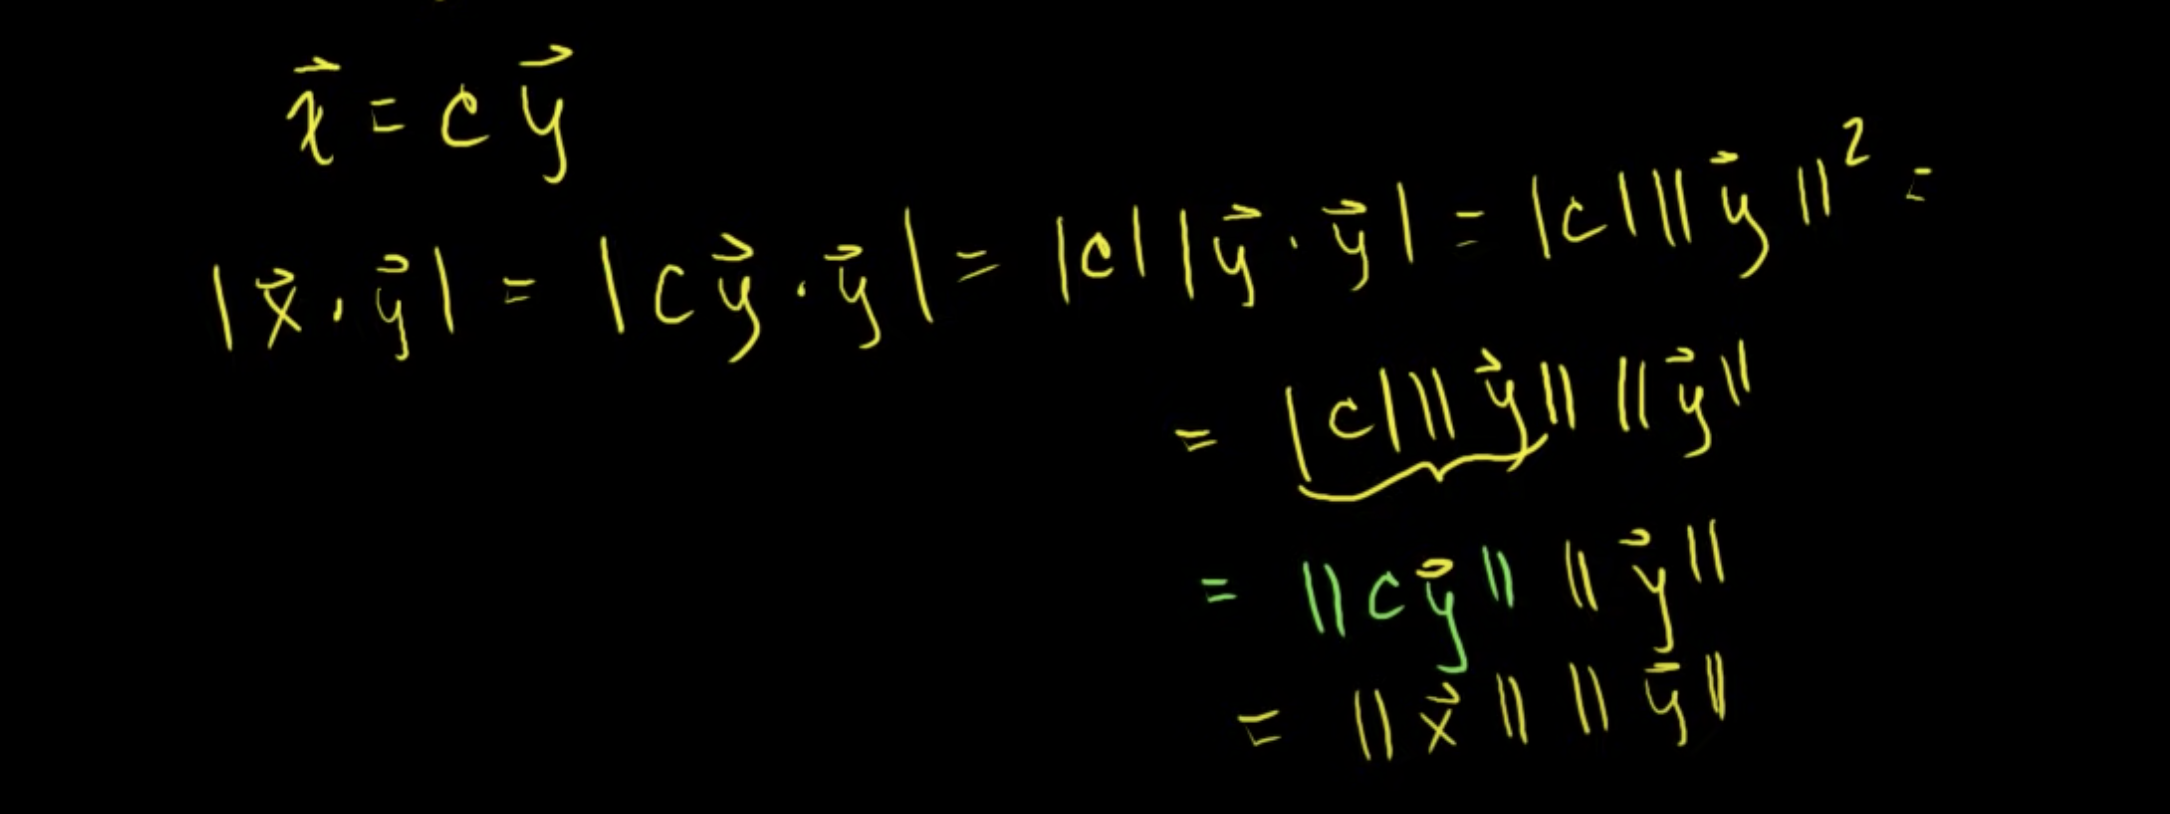 x⃗ = c y⃗
|x⃗ · y⃗| = |c y⃗ · y⃗| = |c| |y⃗ · y⃗| = |c| ||y⃗||² =
= |c| ||y⃗|| ||y⃗||
= ||c y⃗|| ||y⃗||
= ||x⃗|| ||y⃗||